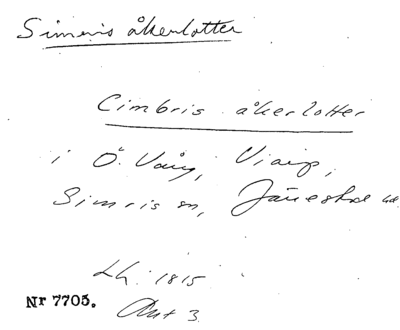 Simris åkerlotter
Cimbris åkerlotter
i Ö. Vång, Viarp,
Simris sn, Järrestad hd.
Lh. 1815
Akt 3.
Nr 7705.